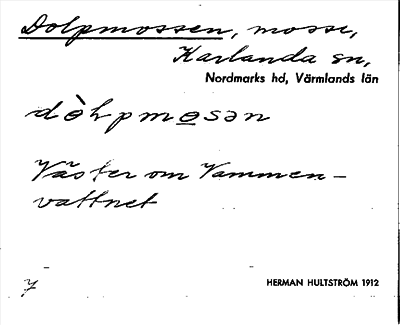 Dolpmossen, mosse,
Karlanda sn,
Nordmarks hd, Värmlands län
dòlpmo̲sən
Väster om Vammen-
vattnet
7
HERMAN HULTSTRÖM 1912